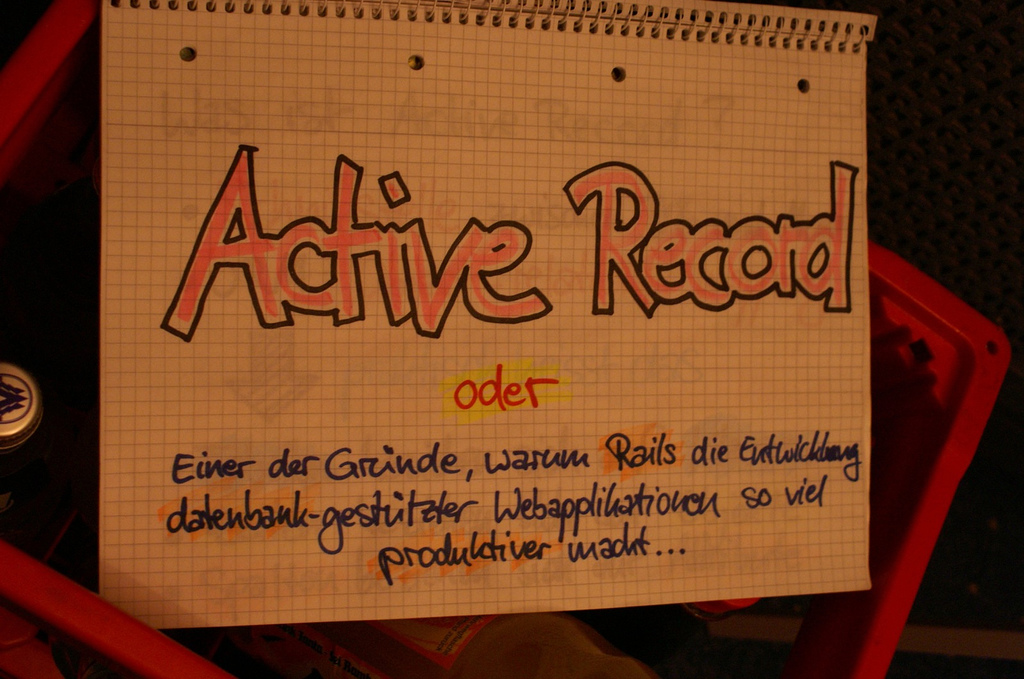 Active Record
oder
Einer der Gründe, warum Rails die Entwicklung
datenbank-gestützter Webapplikationen so viel
produktiver macht...